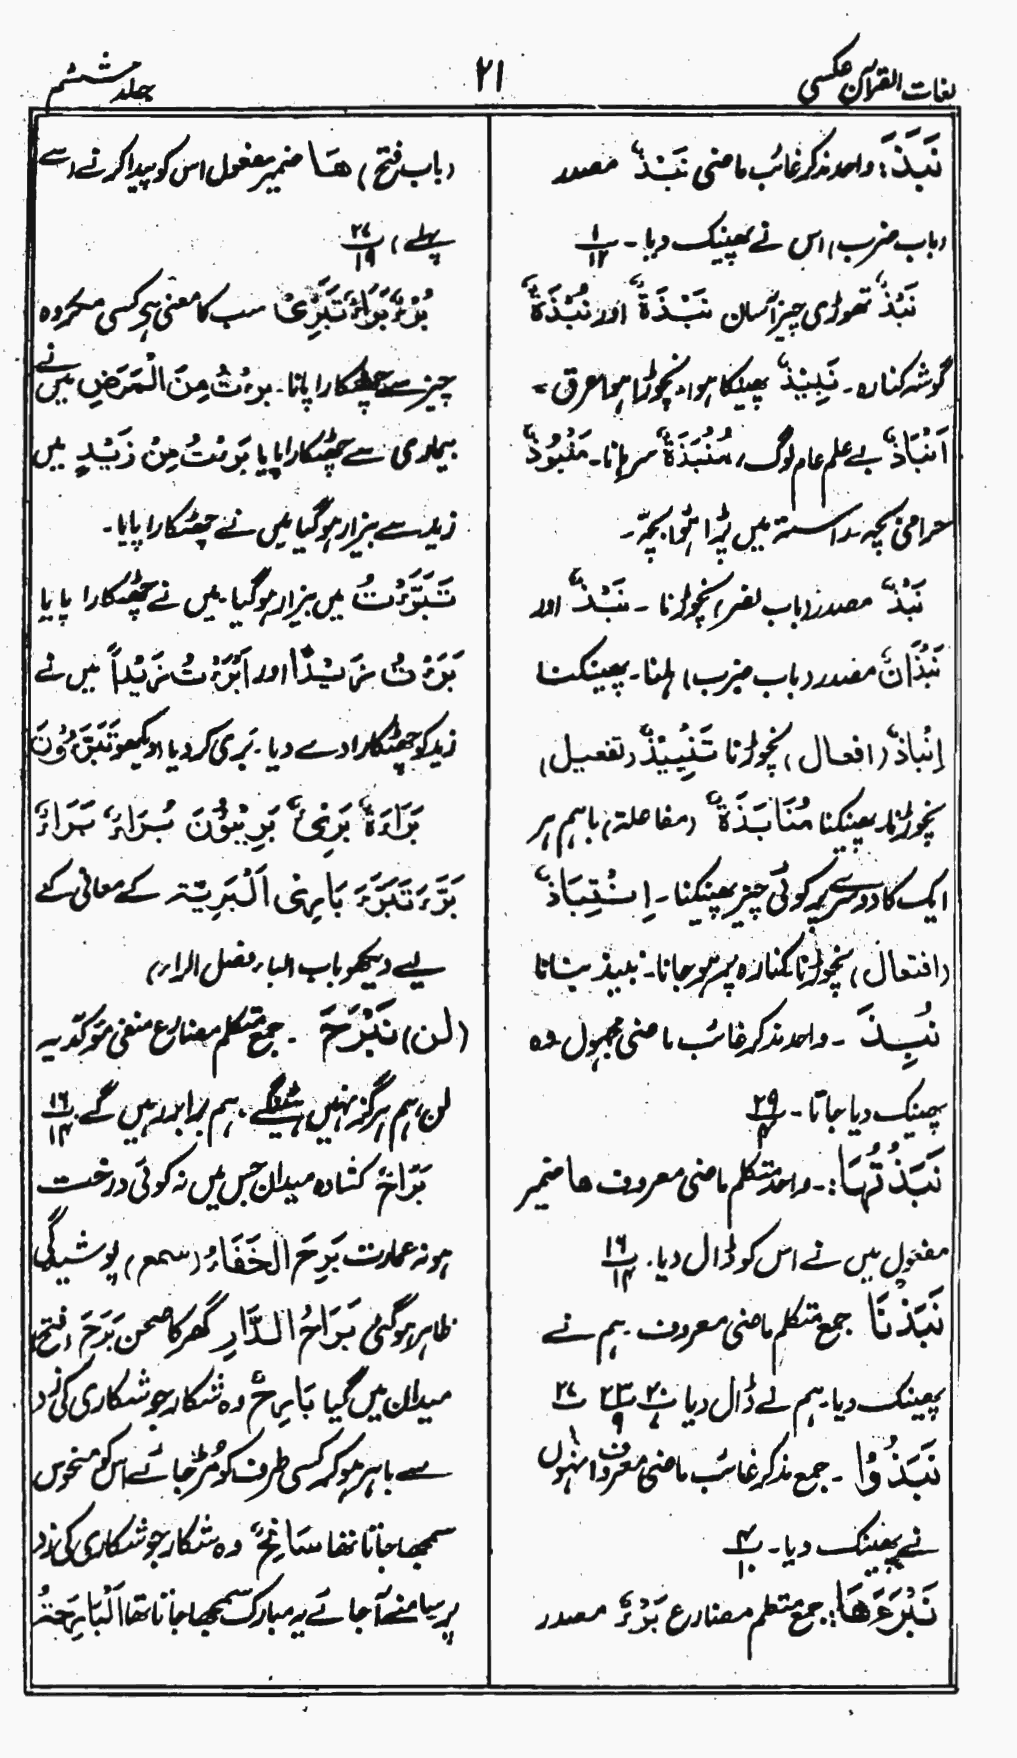 لغات القرآن عکسی
۲۱
جلد ششم
نَبَذَ: واحد مذکر غائب ماضی نَبْذٌ مصدر
(باب ضرب) اس نے پھینک دیا۔ ۱/۱۲
نَبْذٌ تھوڑی چیز آسان نَبْذَةٌ اور نُبْذَةٌ
گوشہ کنارہ۔ نَبِیْذٌ پھینکا ہوا، نچوڑا ہوا عرق۔
اَنْبَاذٌ بے علم عام لوگ، مُنْبَذَةٌ سرہانا۔ مَنْبُوْذٌ
حرامی بچہ۔ راستہ میں پڑا ہُوا بچّہ۔
نَبْذٌ مصدر (باب نصر) نچوڑنا۔ نَبْذٌ اور
نَبَذَانٌ مصدر (باب ضرب) ہلنا۔ پھینکنا
اِنْبَاذٌ (افعال) نچوڑنا تَنْبِیْذٌ (تفعیل)
نچوڑنا، پھینکنا مُنَابَذَةٌ (مفاعلة) باہم ہر
ایک کا دوسرے پر کوئی چیز پھینکنا۔ اِنْتِبَاذٌ
(افتعال) نچوڑنا کنارہ پر ہو جانا۔ نبیذ بنانا
نُبِذَ۔ واحد مذکر غائب ماضی مجہول۔ وہ
پھینک دیا جاتا۔ ۲۹/۴
نَبَذْتُهَا:۔ واحد متکلم ماضی معروف ها ضمیر
مفعول میں نے اس کو ڈال دیا۔ ۱۶/۱۴
نَبَذْنَا جمع متکلم ماضی معروف۔ ہم نے
پھینک دیا۔ ہم نے ڈال دیا ۲۰/۷ ۲۳/۹ ۲۷
نَبَذُوْا۔ جمع مذکر غائب ماضی معروف انہوں
نے پھینک دیا۔ ۴/۱۰
نَبْرَءَهَا: جمع متکلم مضارع بَرْءٌ مصدر
(باب فتح) هَا ضمیر مفعول اس کو پیدا کرنے سے
پہلے، ۲۷/۱۹
بُرْءٌ بَرَاءٌ تَبَرِّیْ سب کا معنی ہے کسی مکروہ
چیز سے چھٹکارا پانا۔ برءتُ مِنَ الْمَرَضِ میں نے
بیماری سے چھٹکارا پایا بَرِئْتُ مِنْ زَیْدٍ میں
زید سے بیزار ہوگیا میں نے چھٹکارا پایا۔
تَبَرَّءْتُ میں بیزار ہوگیا۔ میں نے چھٹکارا پایا
بَرَءْتُ زَیْدًا اور اَبْرَءْتُ زَیْداً میں نے
زید کو چھٹکارا دے دیا۔ بَری کر دیا دیکھو تَبَرَّءُوْنَ
بَرَاءَةٌ بَرِیْءٌ بَرِیْئُوْنَ بُرَاءٌ بَرَاءٌ
بَرَّءَ تَبَرَّءَ بَارِئ اَلْبَرِیَّة کے معانی کے
لیے دیکھو باب الباء فصل الراء)
(لَن) نَبْرَحَ۔ جمع متکلم مضارع منفی مؤکد بہ
لن، ہم ہرگز نہیں ہٹیں گے۔ ہم برابر رہیں گے ۱۶/۱۴
بَرَاحٌ کشادہ میدان جس میں نہ کوئی درخت
ہو نہ عمارت بَرِحَ الخَفَاءُ (سمع) پوشیدگی
ظاہر ہوگئی بَرَاحُ الدَّارِ گھر کا صحن بَرَحَ (فتح)
میدان میں گیا بَارِحٌ وہ شکار جو شکاری کی زد
سے باہر ہو کر کسی طرف کو مُڑ جائے اس کو منحوس
سمجھا جاتا تھا سَانِحٌ وہ شکار جو شکاری کی زد
پر سامنے آ جائے یہ مبارک سمجھا جاتا تھا اَلْبَارِحَةُ